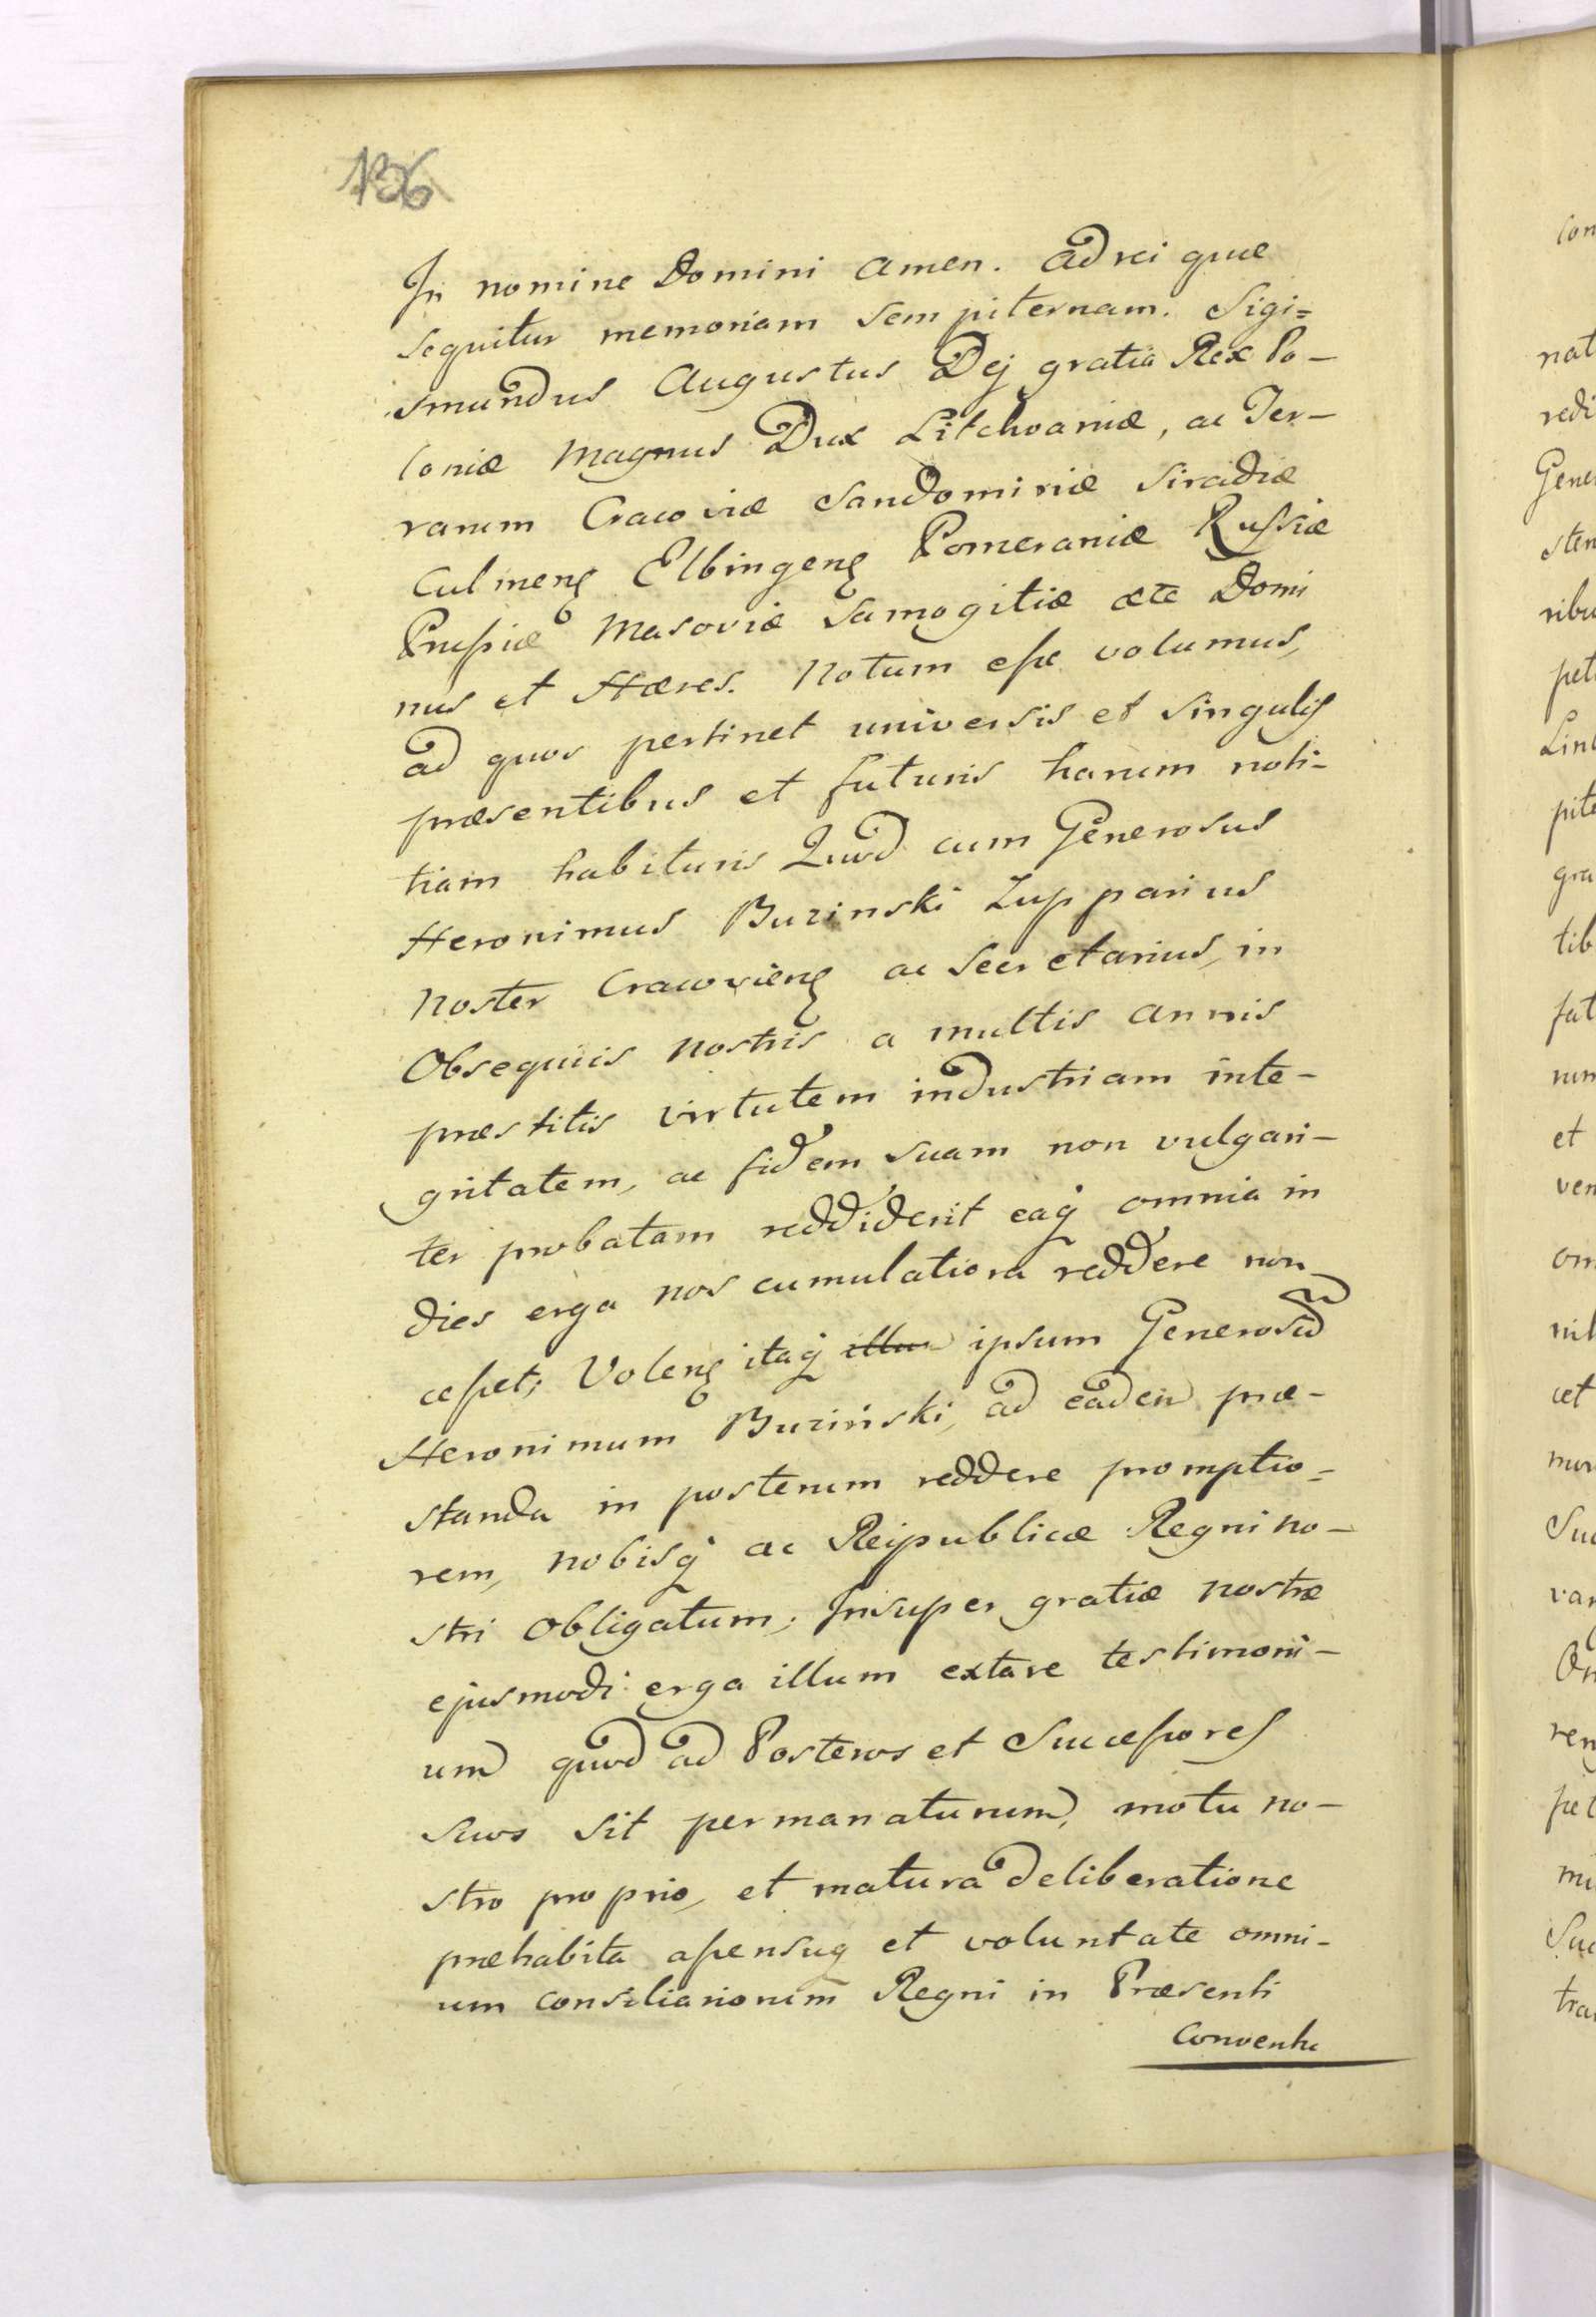 136
In nomine Domini Amen. Ad rei quæ
sequitur memoriam sempiternam. Sigi=
smundus Augustus Dej gratia Rex Po-
loniæ Magnus Dux Litchvaniæ, ac Ter-
rarum Cracoviæ Sandomiriæ Siradiæ
Culmens Elbingens Pomeraniæ Russiæ
Prussiæ Masoviæ Samogitiæ etc Domi
nus et Hæres. Notum esse volumus,
ad quos pertinet universis et singulis
præsentibus et futuris harum noti-
tiam habituris Quod cum Generosus
Heronimus Buzinski Zupparius
Noster Cracoviens ac Secretarius, in
Obsequiis Nostris a multis annis
præstitis virtutem industriam inte-
gritatem, ac fidem suam non vulgari-
ter probatam reddiderit eaq omnia in
dies erga nos cumulatiora reddere non
cesset; Volens itaq illu ipsum Generosū
Heronimum Buziński, ad eadem præ-
standa in posterum reddere promptio=
rem, nobisq ac Reipublicæ Regni no-
stri Obligatum; Insuper gratiæ nostræ
ejusmodi erga illum extare testimoni-
um quod ad Posteros et Successores
suos sit permanaturum, motu no-
stro proprio, et matura deliberatione
præhabita assensuq et voluntate omni-
um consiliariorum Regni in Præsenti
Conventu
con
nat
redi
Gene
sten
ribu
pet
pite
gra
tib
fut
rum
et
ven
om
nih
cet
mur
Suc
var
ren
pet
mi
Suc
tra